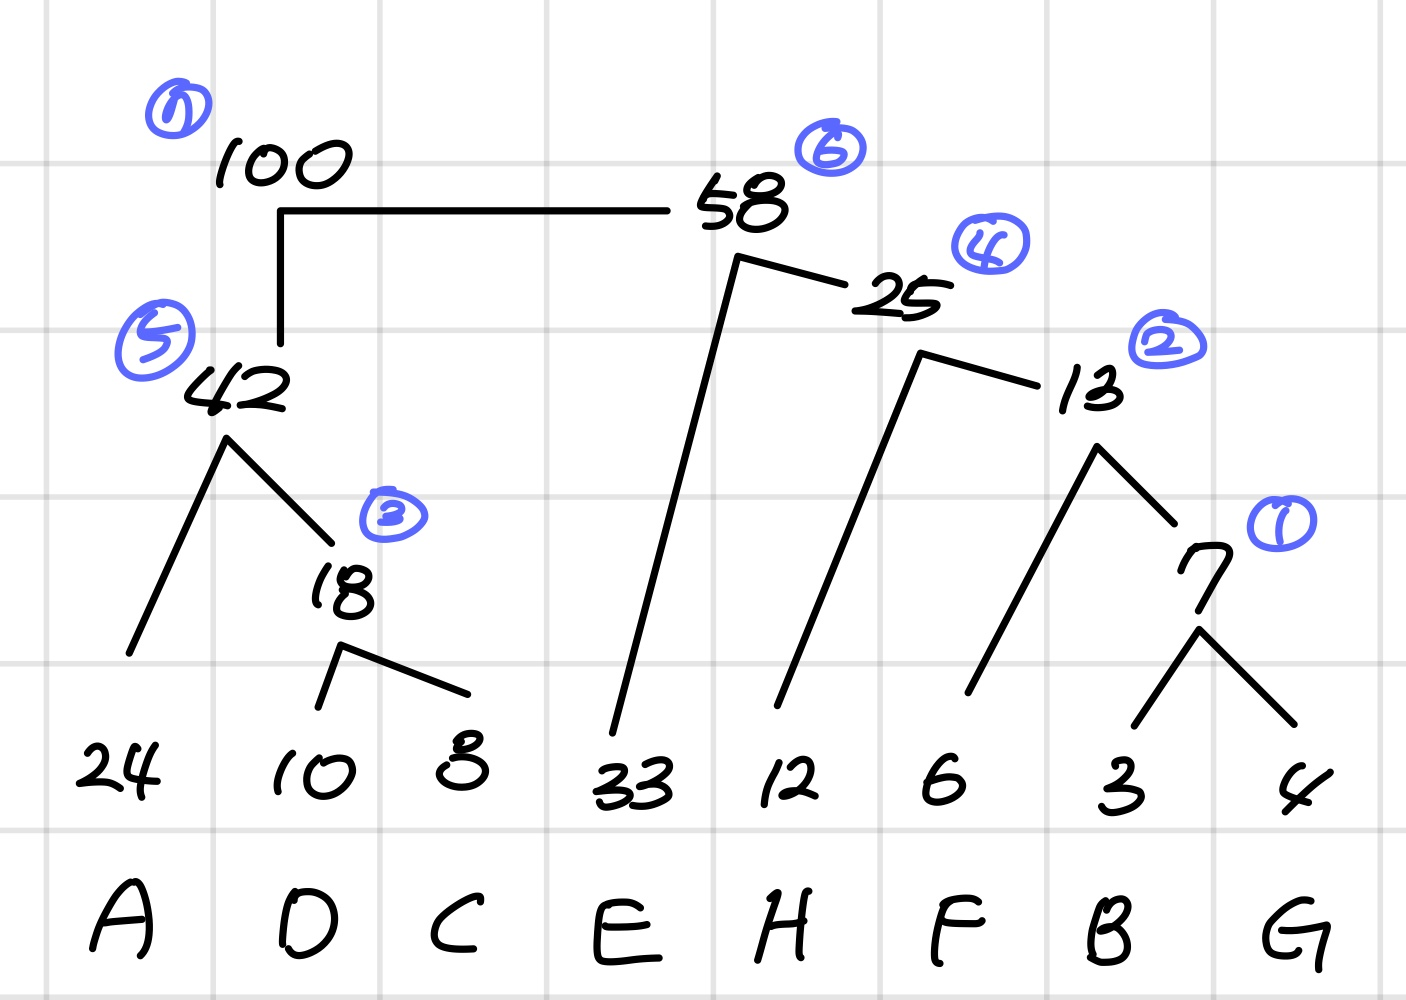 100
58 ⑥
25 ④
⑤
42
13 ②
③
18
7 ①
24 10 8 33 12 6 3 4
A D C E H F B G